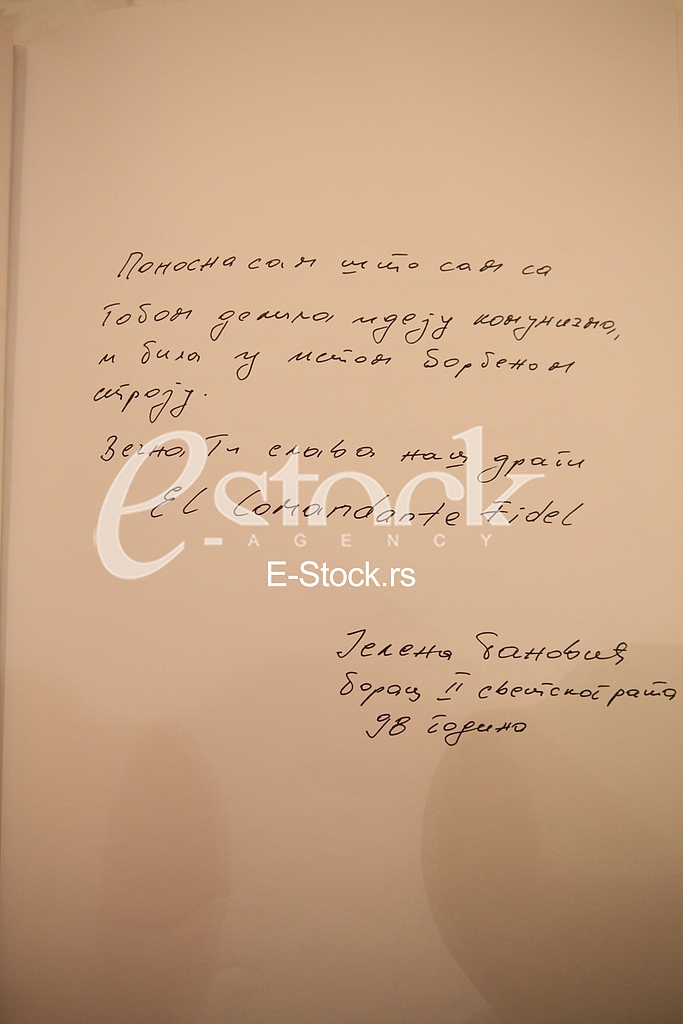 Поносна сам што сам са
Тобом делила идеју комунизма,
и била у истом борбеном
строју.
Вечна Ти слава наш драги
El Comandante Fidel
estock
AGENCY
E-Stock.rs
Јелена Бановић
борац II светског рата
98 година